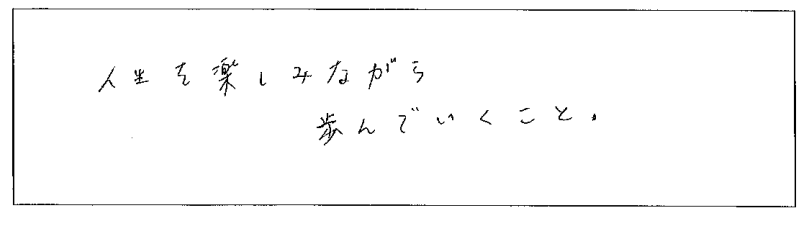 人生を楽しみながら
歩んでいくこと。